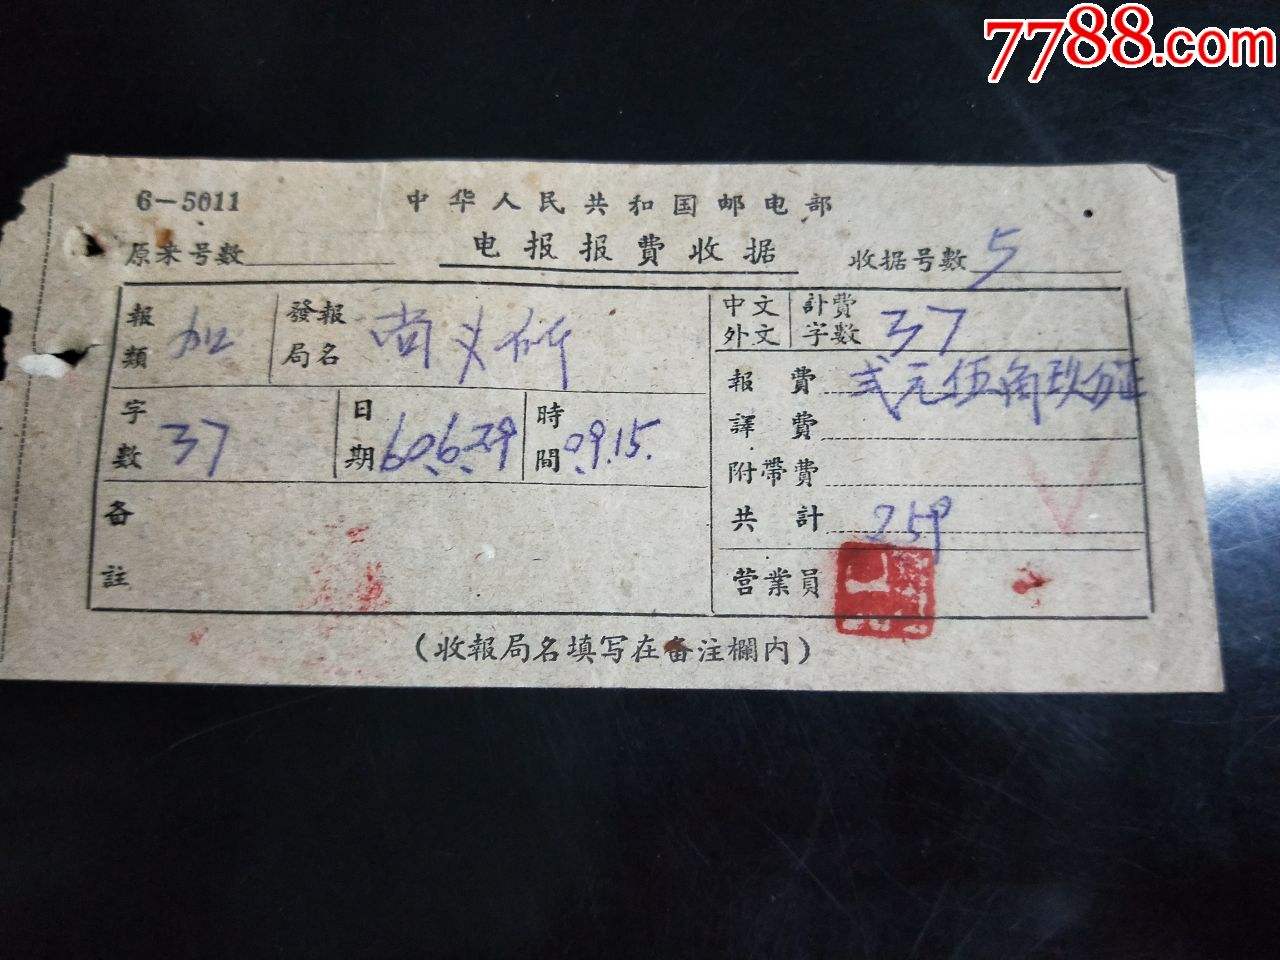 7788.com
6-5011 中华人民共和国邮电部
原来号数 电报报費收据 收据号數 5
報類 加 發報局名 尚义 中文外文 計費字數 37
報費 弍元伍角玖分正
字數 37 日期 60.6.29 時間 09.15.
譯費
附帶費
备註
共計 259
营業員
(收報局名填写在备注欄内)